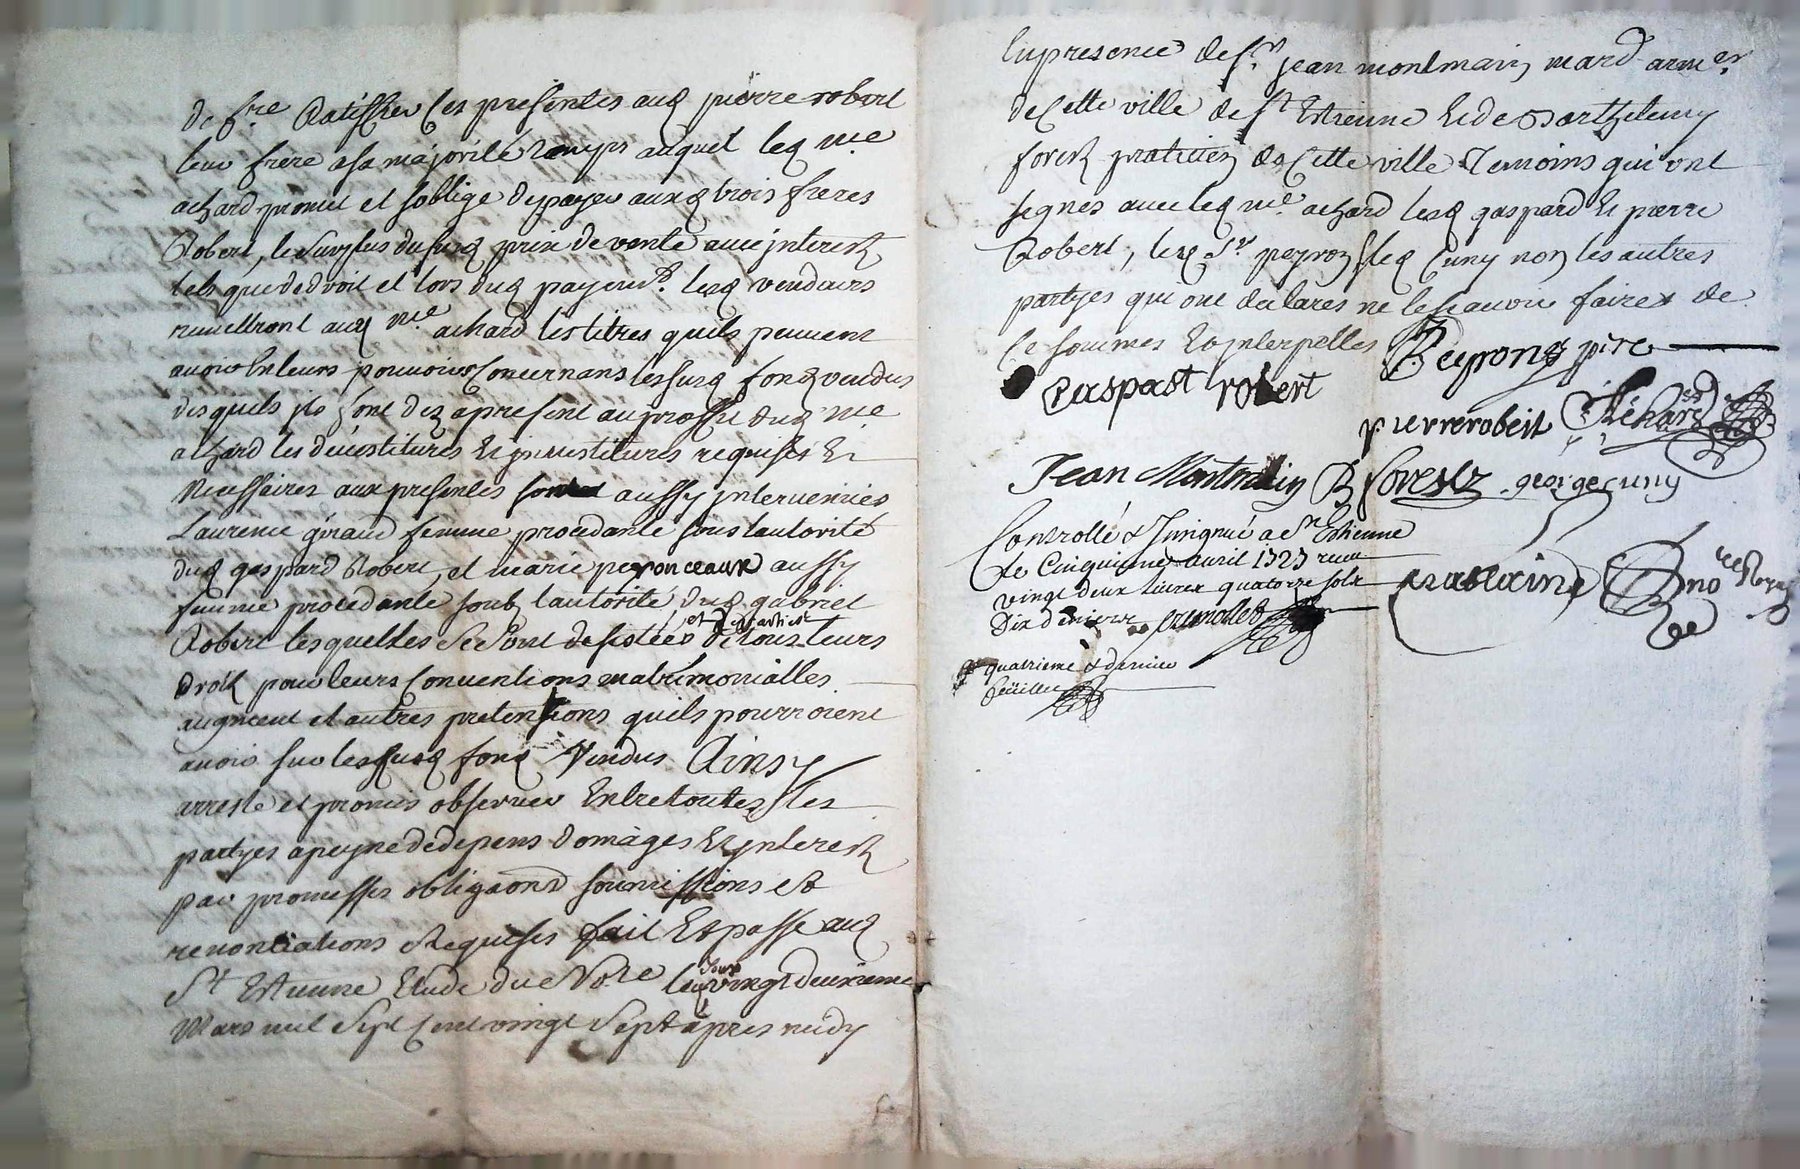 de fre Ratiffier ces presentes aud pierre robert
leur frere a sa majorité temps auquel led me
achard promet et soblige de payer auxd trois freres
Robert, le surplus dususd prix de vente avec jnterest
tels que de droit et lors dud payemt. lesd vendeurs
remettront aud me achard les titres quils peuvent
avoir En leurs pouvoirs Concernans les susd fond vendus
desquels jls sont dez apresent au proffit dud me
achard les devestitures Et jnvestitures requises Et
Necessaires aux presentes sont aussy jntervenues
Laurence géraud femme procedante sous lautorité
dud gaspard Robert, et marie peyronceaux aussy
femme procedante soub lautorité dud gabriel
Robert lesquelles se sont desistées de tous leurs
droit pour leurs Conventions matrimonialles
augment et autres pretentions quils pourroient
avoir sur les susd fond Vendus Ainsy
arresté et promis observer Entre toutes les
partyes a peyne de depens domages Et jnterest
par promesses obligaons soumissions et
renontiations Requises fait Et passé aud
St Estienne Etude du Nore le jour vingt deuxieme
Mars mil Sept Cent vingt Sept apres midy
En presence de sr. jean montmain mard armer
de Cette ville de st Estienne Et de Barthelemy
forest pratitien de Cette ville Temoins qui ont
signes avec led me. achard lesd gaspard Et pierre
Robert, led Sr peyron, led Cuny non les autres
partyes qui ont declares ne le scavoir faire de
Ce sommes Et jnterpelles
Peyron pire
Gaspast robert
pierrerobert Achard
Jean Montmain B forest georgecuny
Controllé & Insignué a St Estienne
le Cinquieme avril 1727 receu
vingt deux livres quatorze sols
Dix deniers
quatrieme & dernier
feüillet